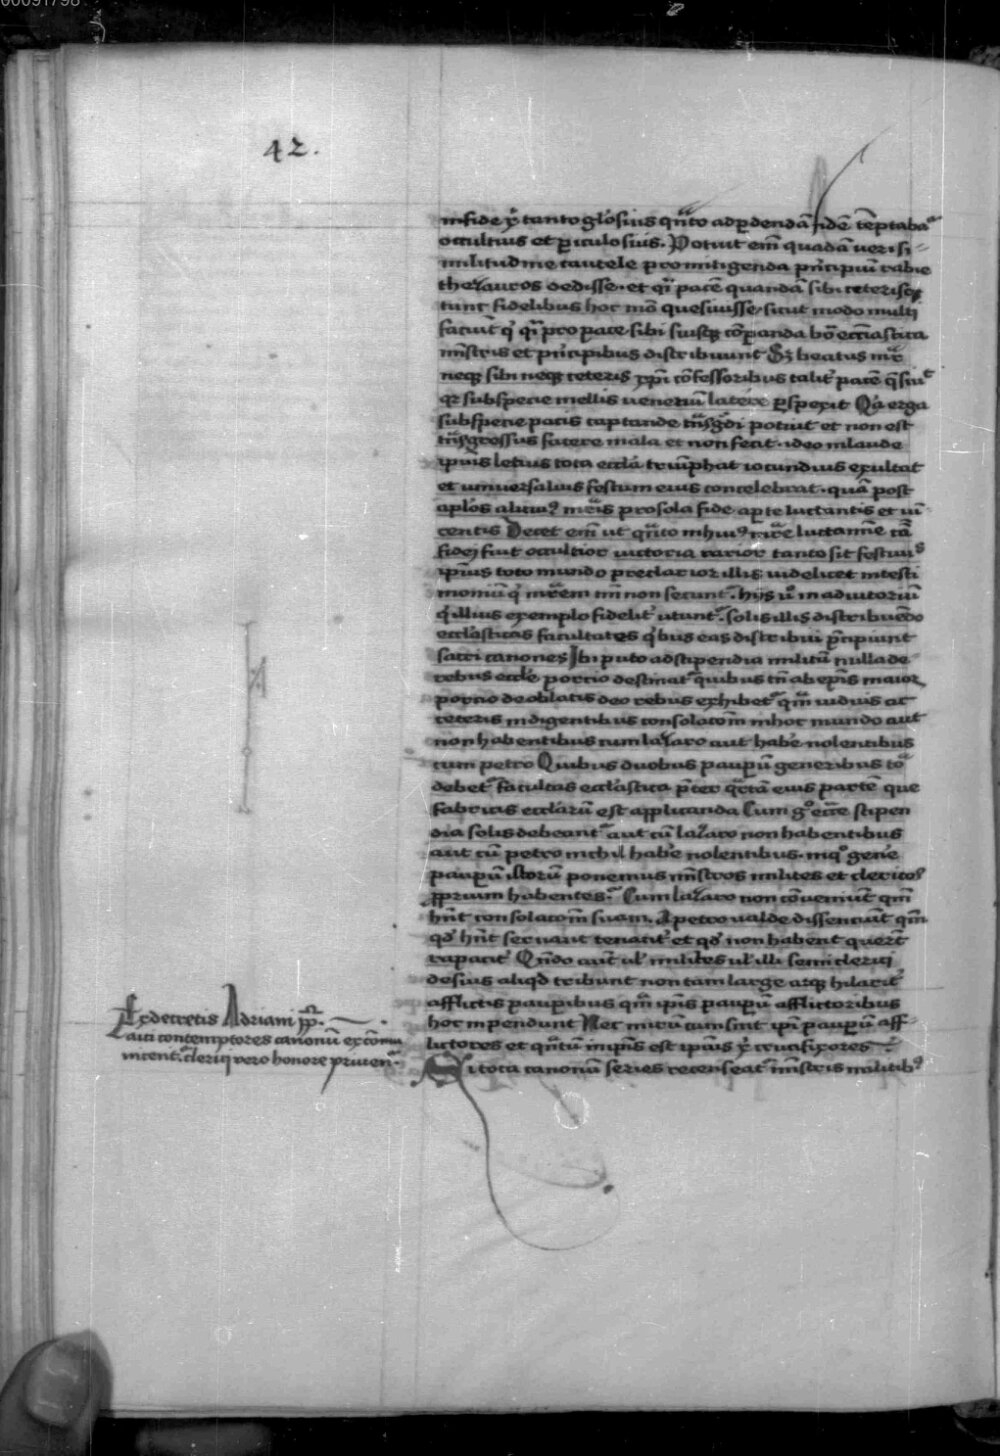 00091798
42.
in fide xp̄i tanto gl'osius qn̄to ad p̲dendā fidē tēptabat᷑
occultius et p̲iculosius. Potuit em̄ quadā ueri si-
militudine cautele pro mitiganda pn̄cipium rabie
thezauros dedisse. et q̄i pacē quandā sibi ceterisq
tunc fidelibus hoc mō quesiuisse. sicut modo multi
faciūt q' q̄i pro pace sibi suisq cōpanda bō ecc̄iastica
mīstris et pn̄cipibus distribuunt Sꝫ beatus mr̄
neq sibi neq ceteris xp̄i cōfessoribus talit' pacē q̄siuit
qr sub specie mellis uenenū latere p̲spexit Q'a erga
sub specie pacis captande tn̄sg̊di potuit et non est
tn̄sgressus facere mala et non fecit. ideo in laude
ipius letius tota eccl'a triūphat iocundius exultat
et uniuersalius festum eius concelebrat. quā post
apl'os alicui' mr̄is pro sola fide aperte luctantis et uī
centis Decet em̄ ut qn̄to in hui' mr̄e luctamīe cā
fidei fuit occultior uictoria rarior tanto sit festiui'
ipīus toto mundo preclarior illis uidelicet in testi
monium q' mr̄em īmi non secunt᷑. hijs u° in adiutorium
q' illius exemplo fidelit' utunt᷑. solis illis distribuēdo
ecclāsticas facultates q'bus eas distribui p̄cipiunt
sacri canones Ibi puto ad stipendia militū nulla de
rebus eccl'e portio destinat᷑ quibus tn̄ ab ep̄is maior
portio de oblatis deo rebus exhibet᷑ qm̄ uiduis ac
ceteris indigentibus consolacōm in hoc mundo aut
non habentibus cum lazaro aut hab'e nolentibus
cum petro Quibus duobus paup̲ū generibus tō
debet᷑ facultas ecclāstica p̄ter q̄rtā eius partē que
fabricis ecclarū est applicanda Cum g° ecc̄e stipen
dia solis debeant᷑ aut cū lazaro non habentibus
aut cū petro nichil hab'e nolentibus. in q° gen'e
paup̲ū istorū ponemus mīstros milites et clericos
pprium habentes. Cum lazaro non cōueniūt qm̄
hn̄t consolacōm suam. A petro ualde dissenciūt qm̄
qd' hn̄t seruant tenacit' et qd' non habent querūt
rapacit' Qn̄do aūt ul' milites ul' illi semiclerici
de suis aliqd tribunt non tam large atq hilarit'
afflictis paup̲ibus qm̄ ipīs paup̲ū afflictoribus
hoc inpendunt Nec mirū cum sint ipī paup̲ū aff-
lictores et qn̄tū in ip̄is est ipīus xp̄i crucifixores
Si tota canonū series recenseat᷑ mīstris militib'
Ex decretis Adriani pp̄.
Laici contemptores canonū excōmu
nicent᷑. clerici vero honore priuen᷑.